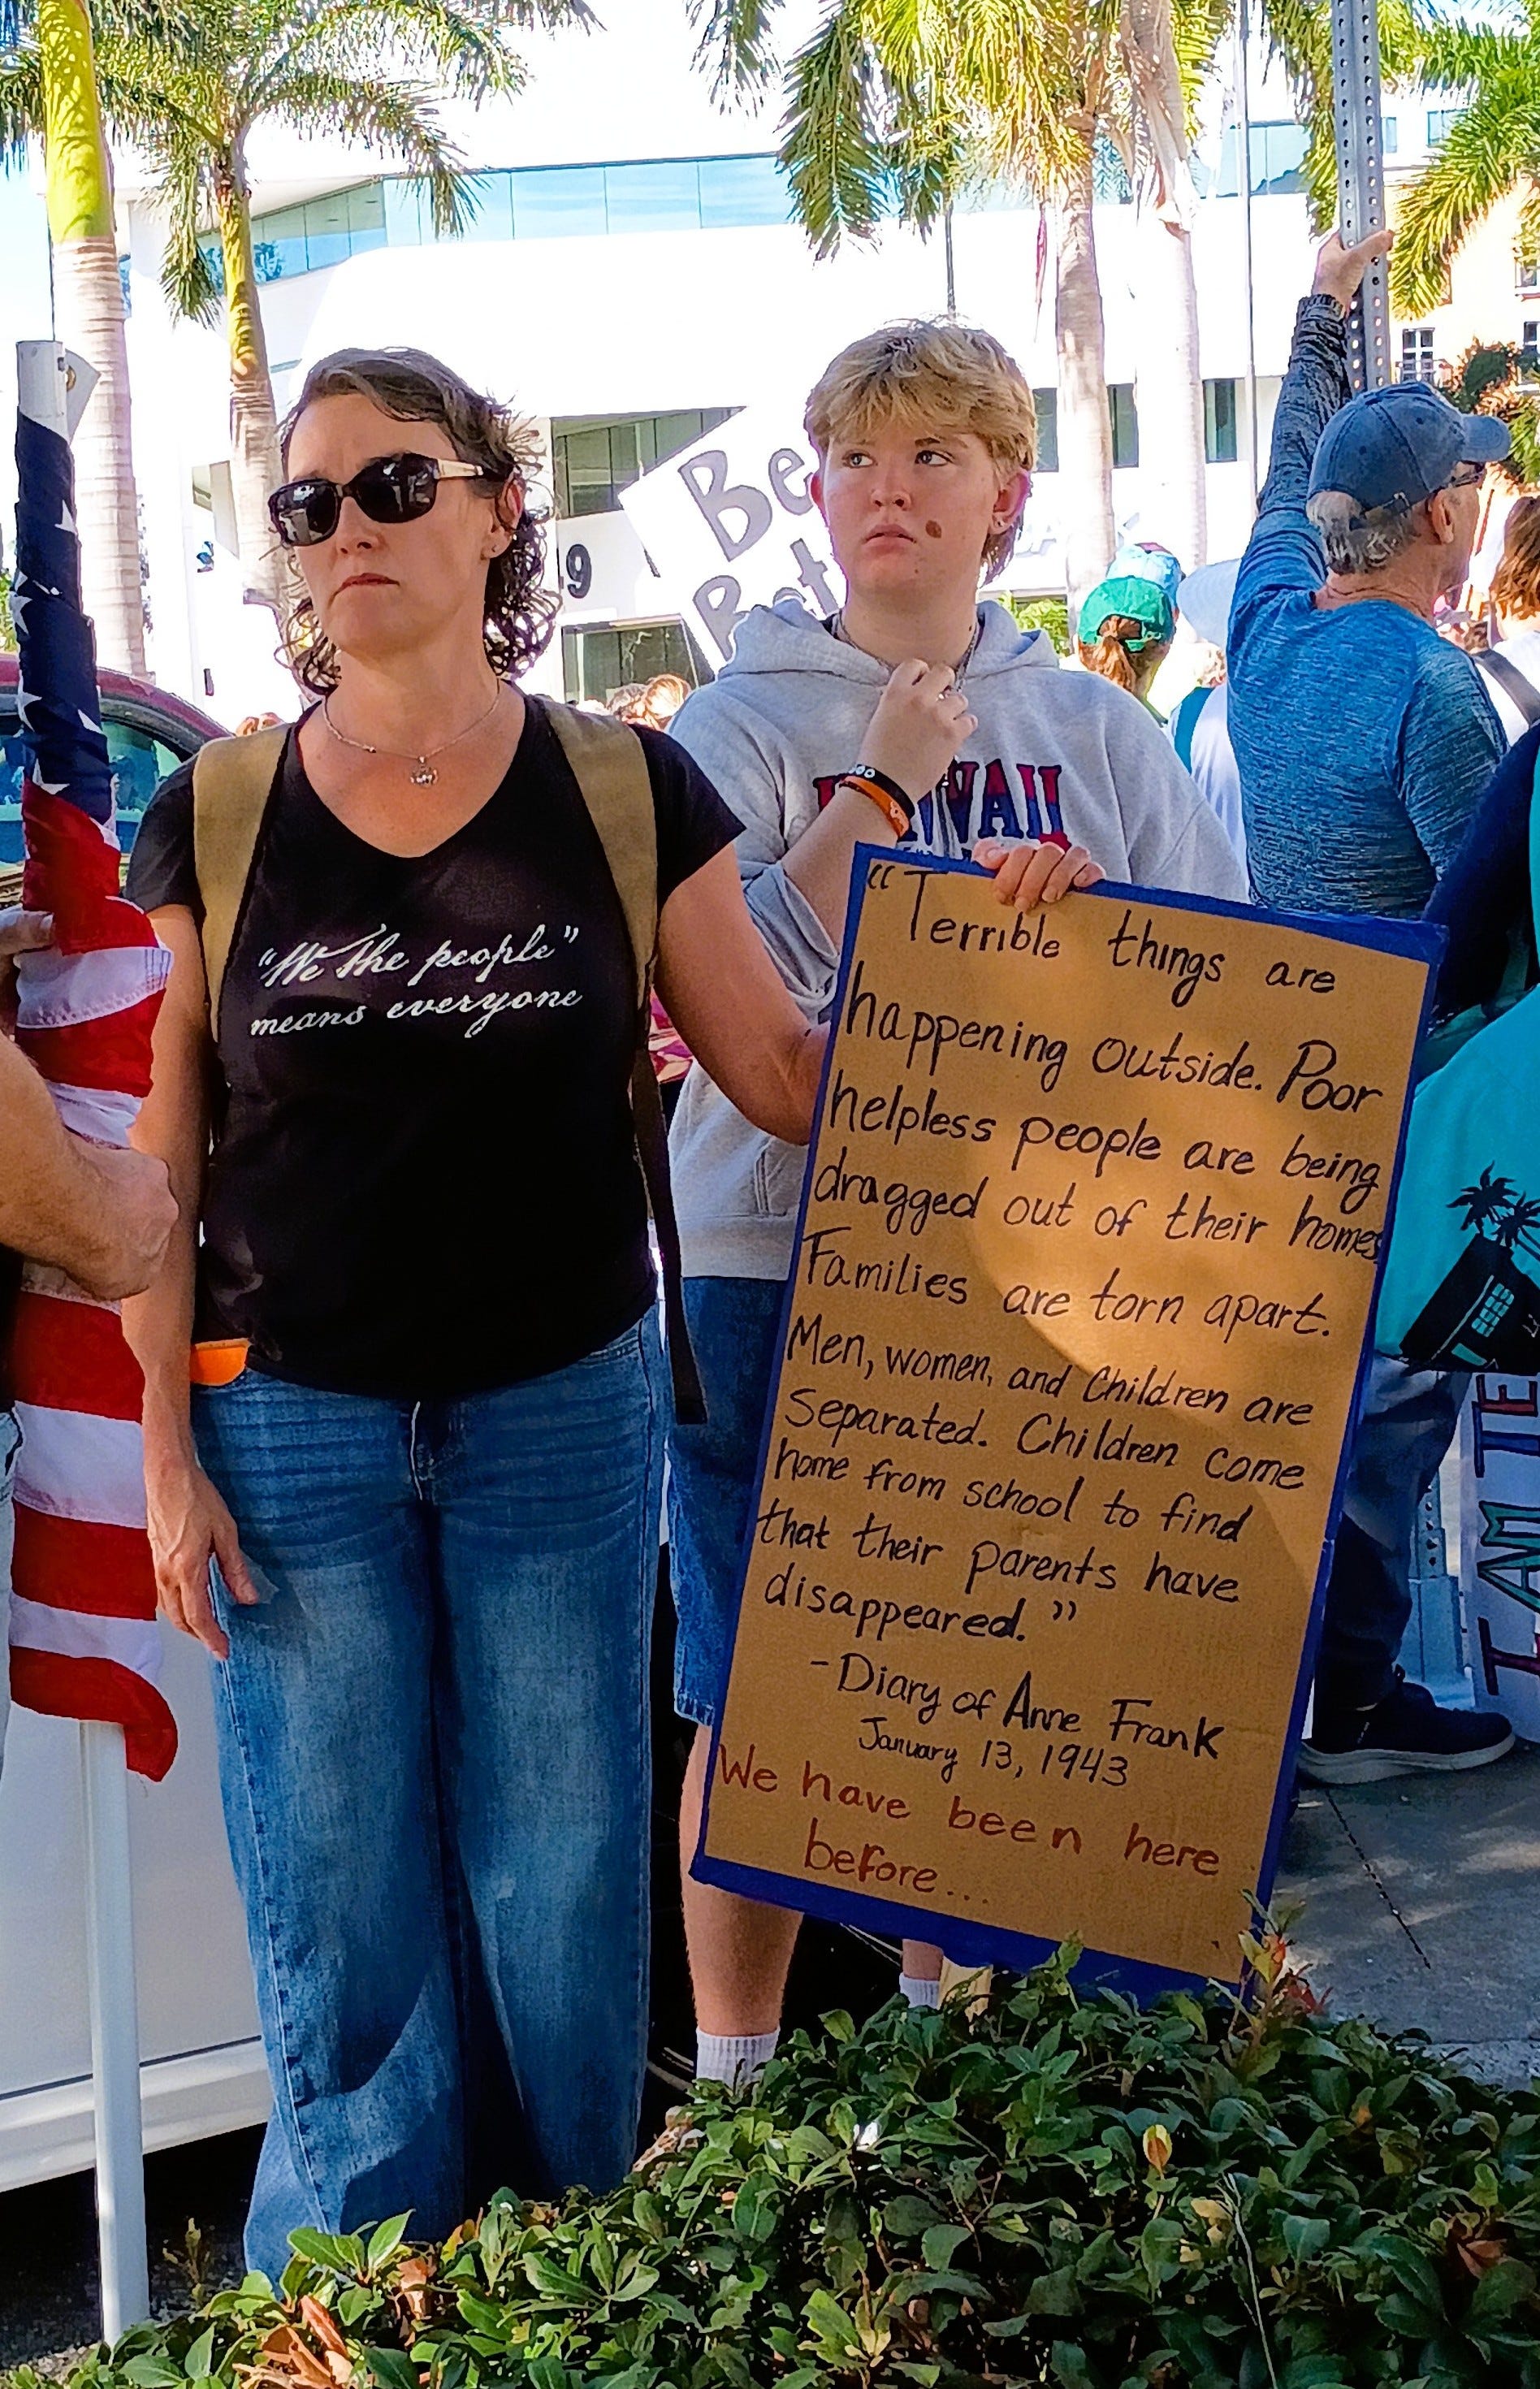 Be
9
HAWAII
"We the people"
means everyone
"Terrible things are
happening outside. Poor
helpless people are being
dragged out of their homes
Families are torn apart.
Men, women, and Children are
Separated. Children come
home from school to find
that their parents have
disappeared."
-Diary of Anne Frank
January 13, 1943
We have been here
before...